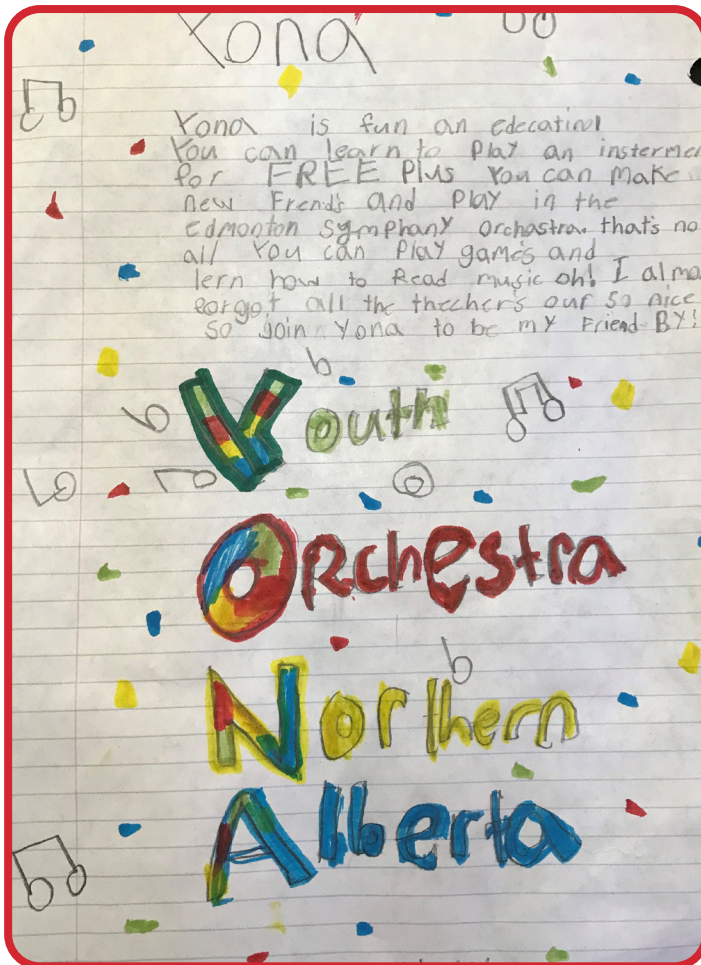 Yona
Yona is fun an edecatinl
You can learn to Play an instermen
for FREE Plus You can make
new Frends and Play in the
Edmonton Symphany Orchastra. that's no
all You can Play games and
lern how to Read music oh! I almo
forgot all the thecher's our so nice
so join Yona to be my Friend BY!
Youth
Orchestra
Northern
Alberta